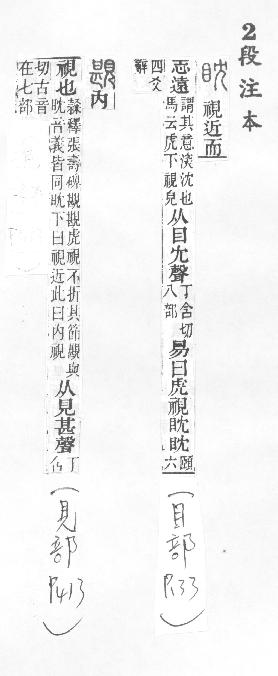 2段注本
眈 視近而
志遠 謂其意湥沈也馬云虎下視皃 从目冘聲 丁含切八部 易曰虎視眈眈 頤六四爻辭
(目部 P.133)
覘 內
視也 隸釋張壽碑覘覘虎視不折其節覘與眈音義皆同眈下曰視近此曰內視 从見甚聲 丁含切古音在七部
(見部 P.413)